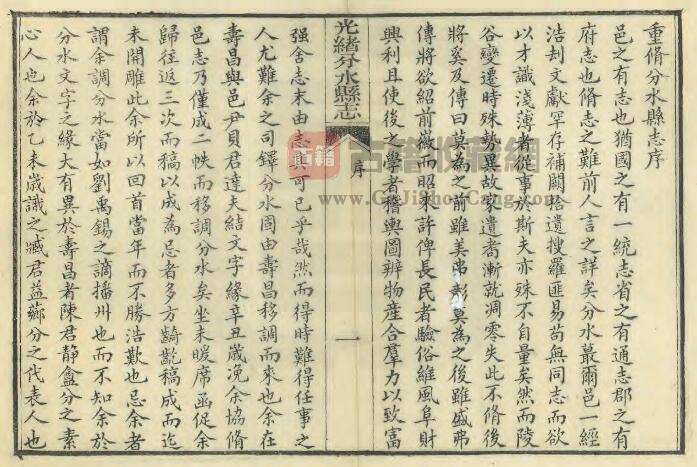 重脩分水縣志序
邑之有志也猶國之有一統志省之有通志郡之有
府志也脩志之難前人言之詳矣分水蕞爾邑一經
浩刦文獻罕存補闕拾遺搜羅匪易苟無同志而欲
以才識淺薄者從事於斯夫亦殊不自量矣然而陵
谷變遷時殊勢異故家遺耇漸就凋零失此不脩後
將奚及傳曰莫為之前雖美弗彰莫為之後雖盛弗
傳將欲紹前徽而昭來許俾長民者驗俗維風阜財
興利且使後之學者稽輿圖辨物產合羣力以致富
光緒分水縣志
序
一
强舍志末由志其可已乎哉然而得時難得任事之
人尤難余之司鐸分水固由壽昌移調而來也余在
壽昌與邑尹貝君達夫結文字緣辛丑歲浼余協脩
邑志乃僅成二帙而移調分水矣坐未暖席函促余
歸往返三次而稿以成為忌者多方齮齕稿成而迄
未開雕此余所以回首當年而不勝浩歎也忌余者
謂余調分水當如劉禹錫之謫播州也而不知余於
分水文字之緣大有異於壽昌者陳君靜盦分之素
心人也余於乙未歲識之臧君益薌分之代表人也
古籍收藏網
www.GuJiShouCang.com